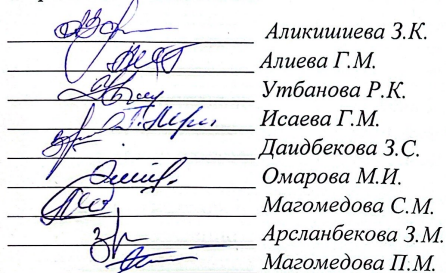 Аликишиева З.К.
Алиева Г.М.
Утбанова Р.К.
Исаева Г.М.
Даидбекова З.С.
Омарова М.И.
Магомедова С.М.
Арсланбекова З.М.
Магомедова П.М.